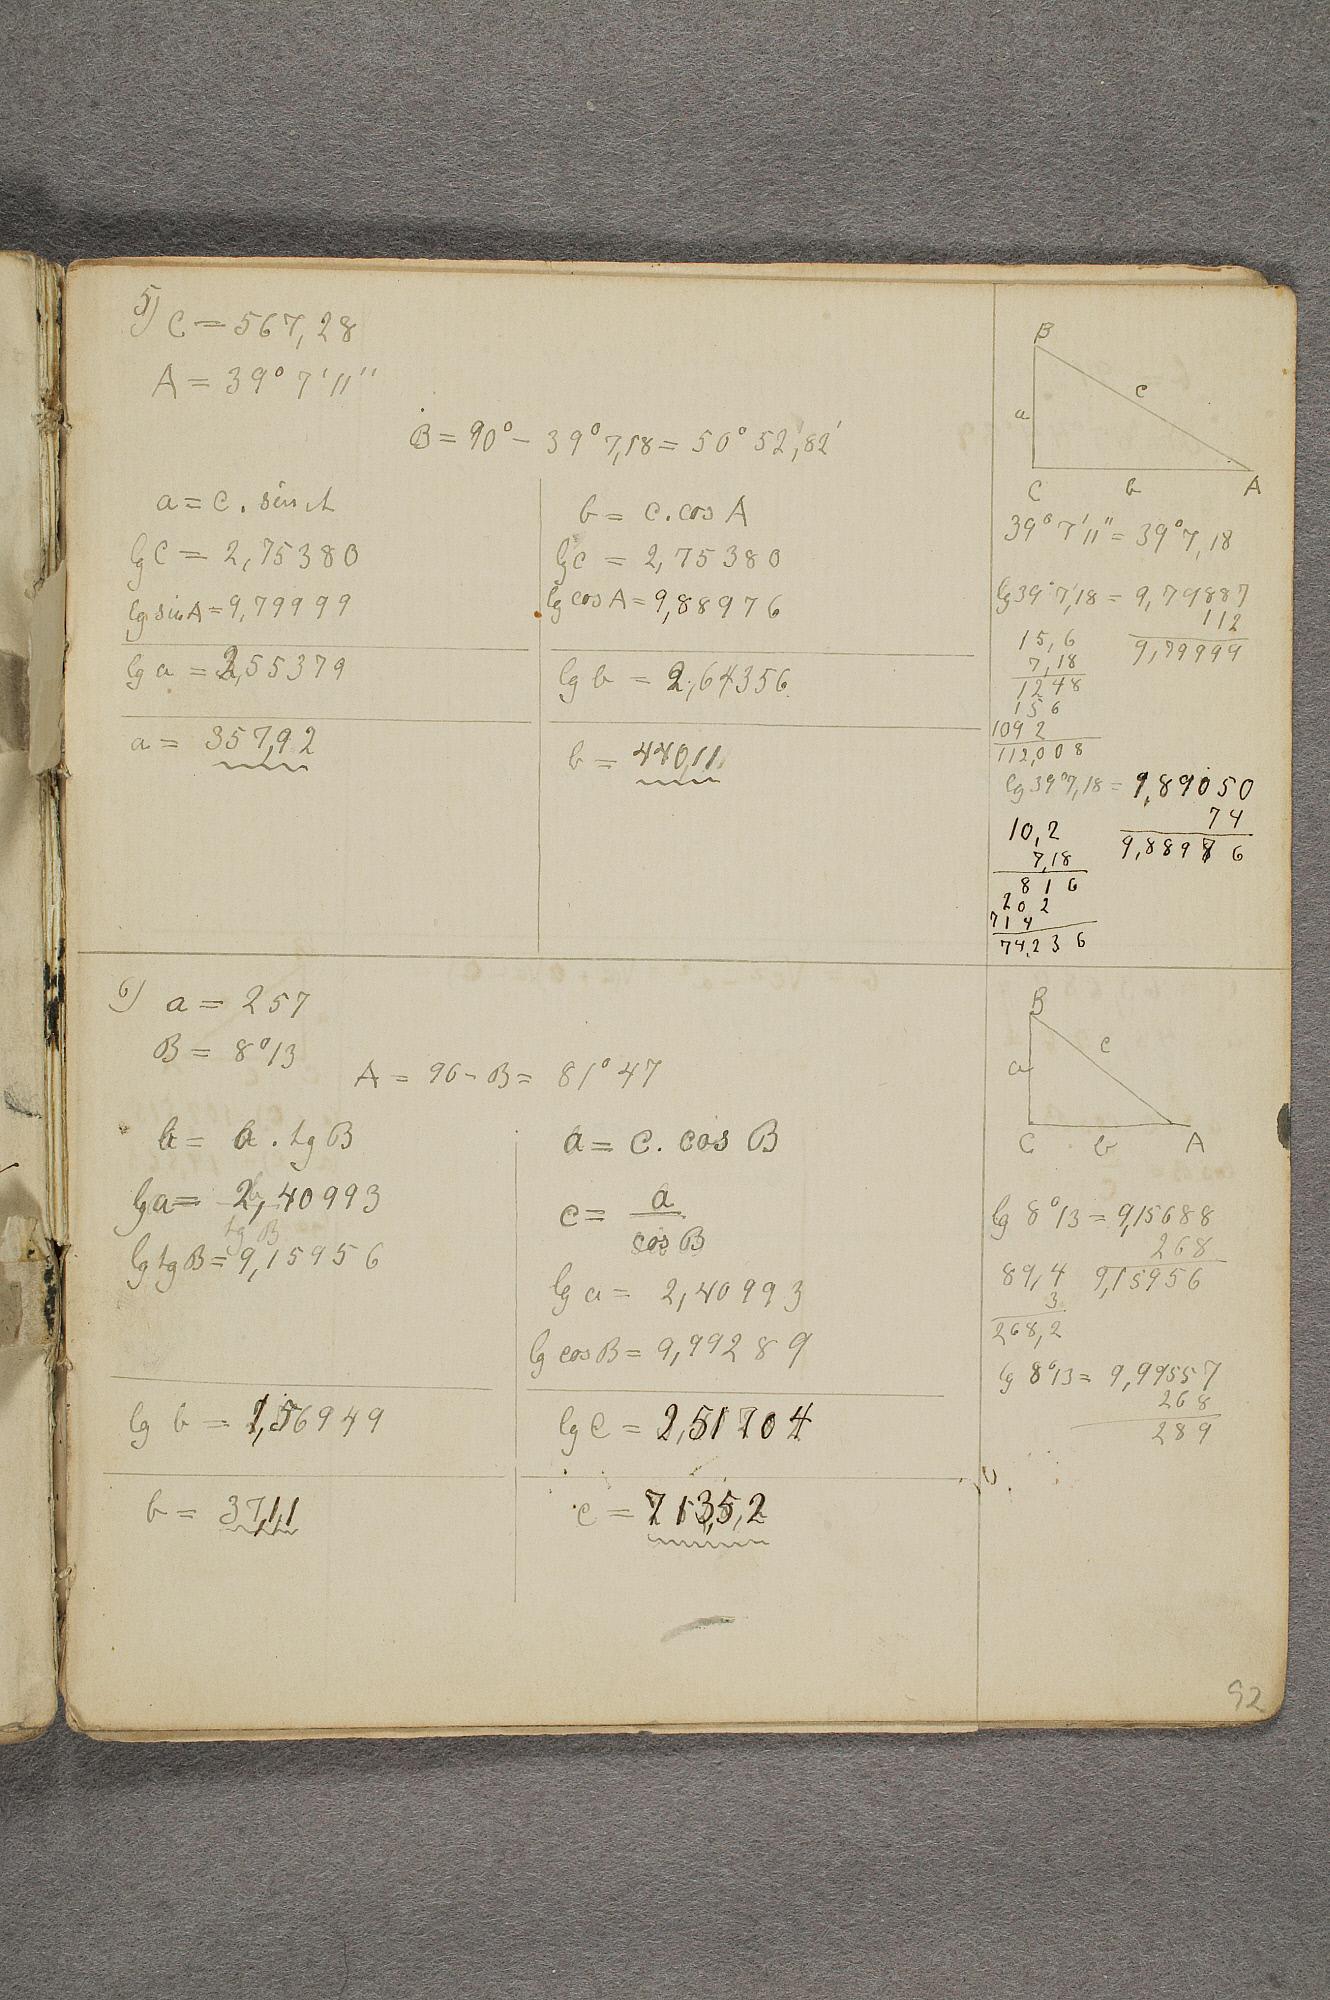 5) C = 567,28
A = 39° 7' 11''
B = 90° - 39° 7,18 = 50° 52,82'
a = c . sin A
lg c = 2,75380
lg sin A = 9,79999
lg a = 2,55379
a = 357,92
b = c . cos A
lg c = 2,75380
lg cos A = 9,88976
lg b = 2,64356
b = 440,11
B
c
a
C b A
39° 7' 11'' = 39° 7,18
lg 39° 7,18 = 9,79887
112
9,79999
15,6
7,18
1248
156
1092
112,008
lg 39° 7,18 = 9,89050
74
9,88976
10,2
7,18
816
202
714
74,236
6) a = 257
B = 8° 13
A = 90 - B = 81° 47
b = a . tg B
lg a = 2,40993
tg B
lg tg B = 9,15956
lg b = 1,56949
b = 37,11
a = c . cos B
c = a
cos B
lg a = 2,40993
lg cos B = 9,99289
lg c =
c =
B
c
a
C b A
lg 8° 13 = 9,15688
268
9,15956
89,4
3
268,2
lg 8° 13 = 9,99557
268
289
92